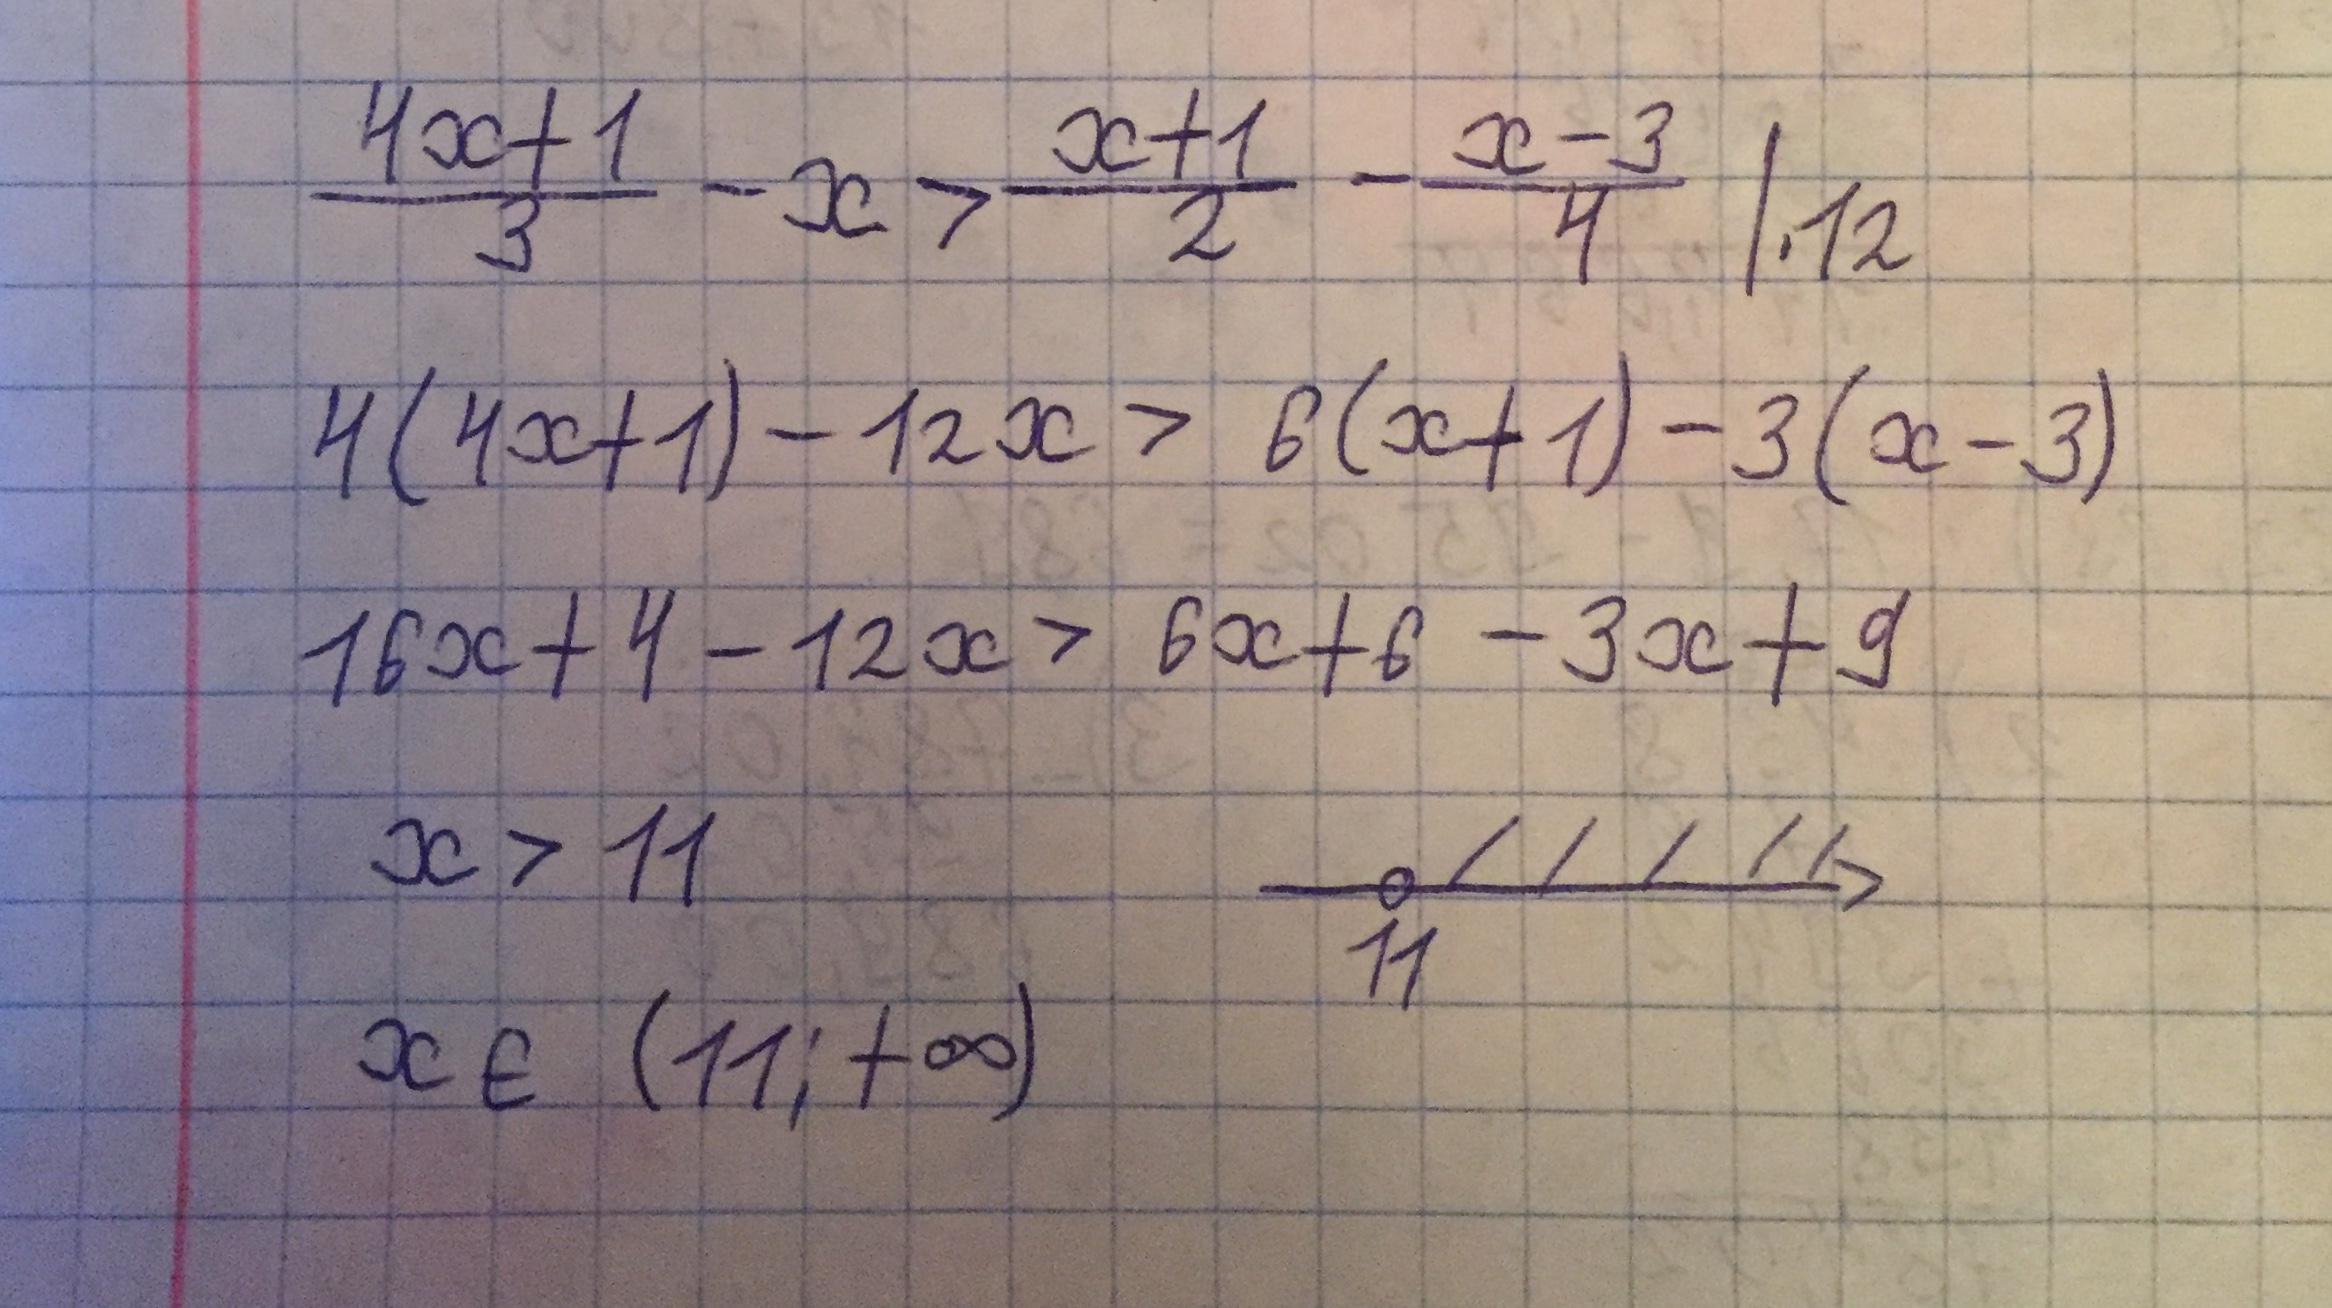 (4x+1)/3 - x > (x+1)/2 - (x-3)/4 |·12
4(4x+1) - 12x > 6(x+1) - 3(x-3)
16x+4 - 12x > 6x+6 - 3x+9
x > 11
11
x ∈ (11; +∞)